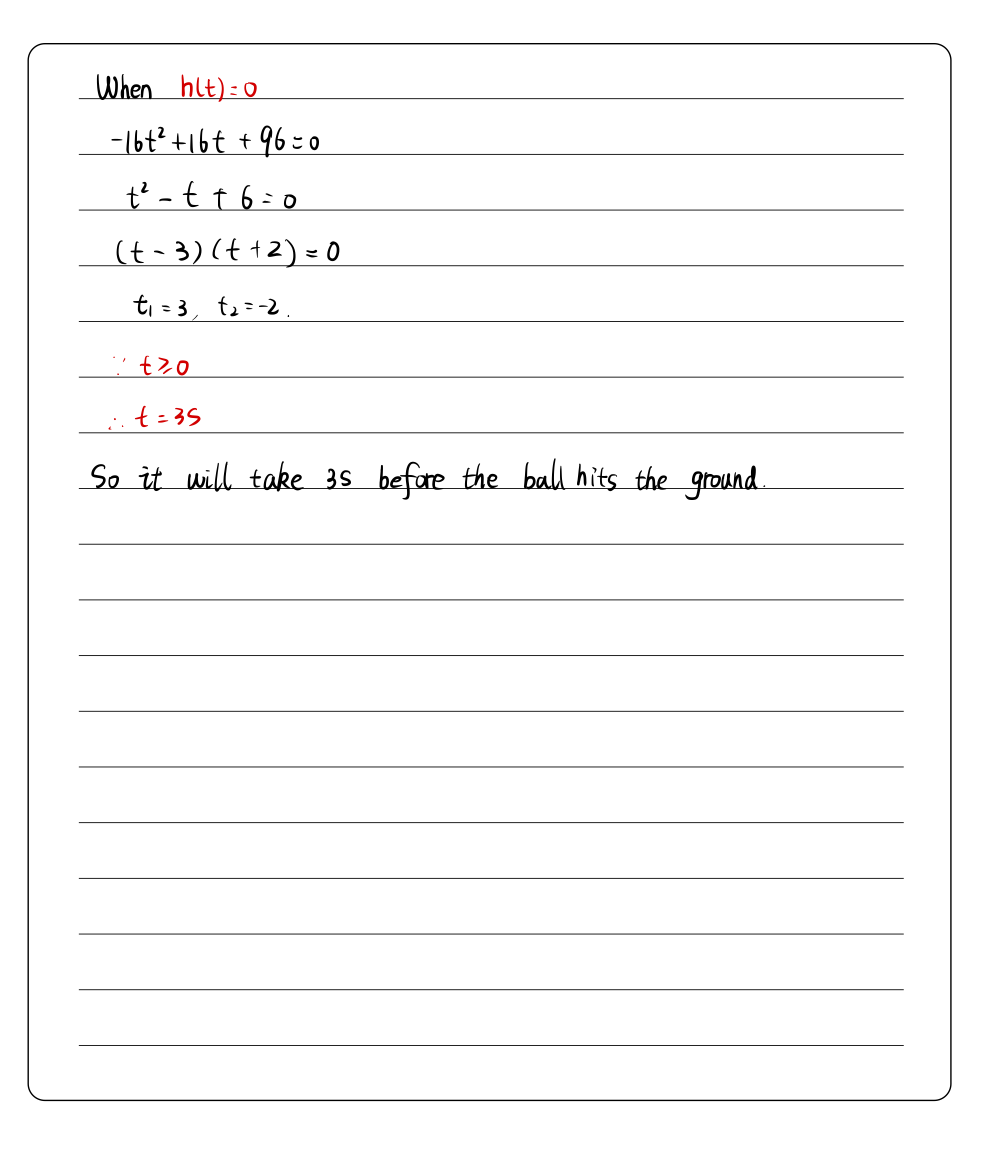 When h(t)=0
-16t²+16t+96=0
t²-t+6=0
(t-3)(t+2)=0
t₁=3, t₂=-2.
∵ t≥0
∴ t=3s
So it will take 3s before the ball hits the ground.